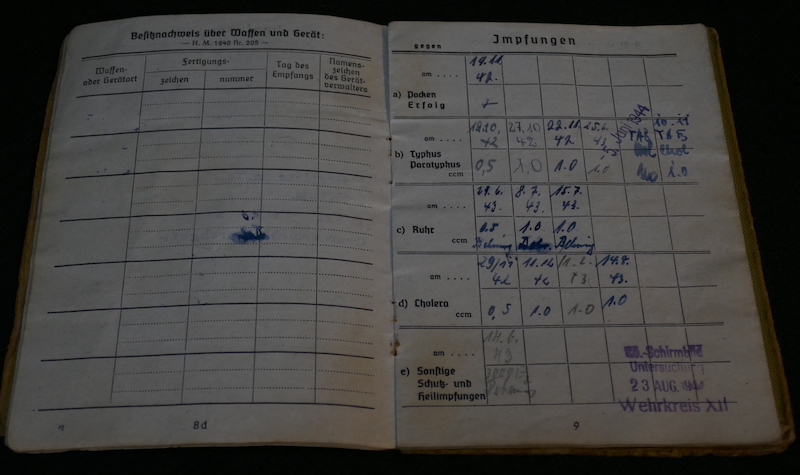 Besitznachweis über Waffen und Gerät:
— H. M. 1940 Nr. 205 —
Waffen-
oder Gerätart
Fertigungs-
zeichen
nummer
Tag des
Empfangs
Namens-
zeichen
des Gerät-
verwalters
8d
Impfungen
gegen
am ....
19.11.
42.
a) Pocken
Erfolg
am ....
27.10
22.11.
42
42
42
5. Juni 1944
b) Typhus
Paratyphus
ccm
0,5
1.0
1.0
1.0
1.0
am ....
8.7.
15.7.
43.
43.
43.
c) Ruhr
ccm
0.5
1.0
1.0
Behring
Behring
am ....
42
42
43.
d) Cholera
ccm
0,5
1.0
1.0
1.0
am ....
14.6.
43
e) Sonstige
Schutz- und
Heilimpfungen
-Schirmbild
Untersuchung
23 AUG. 1944
Wehrkreis XII
9